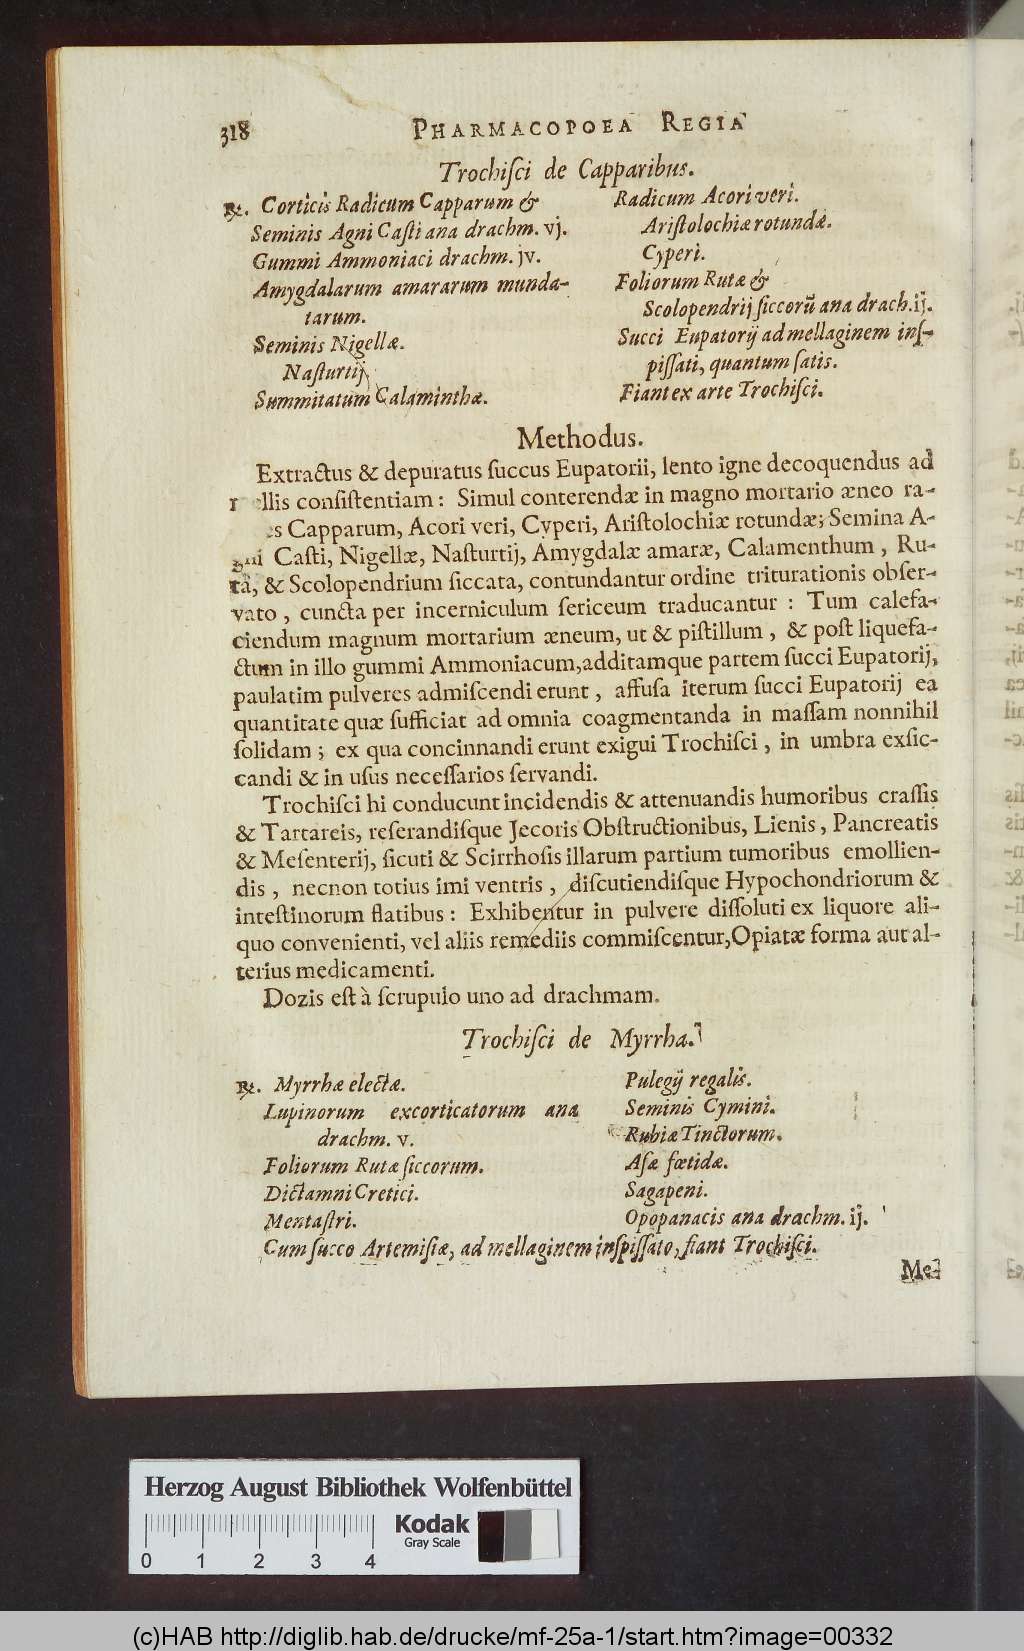 318 PHARMACOPOEA REGIA
Trochiſci de Capparibus.
℞. Corticis Radicum Capparum &
Seminis Agni Caſti ana drachm. vj.
Gummi Ammoniaci drachm. jv.
Amygdalarum amararum munda-
tarum.
Seminis Nigellæ.
Naſturtij
Summitatum Calaminthæ.
Radicum Acori veri.
Ariſtolochiæ rotundæ.
Cyperi.
Foliorum Rutæ &
Scolopendrij ſiccorũ ana drach. ij.
Succi Eupatorij ad mellaginem inſ-
piſſati, quantum ſatis.
Fiant ex arte Trochiſci.
Methodus.
Extractus & depuratus ſuccus Eupatorii, lento igne decoquendus ad
llis conſiſtentiam: Simul conterendæ in magno mortario æneo ra-
s Capparum, Acori veri, Cyperi, Ariſtolochiæ rotundæ; Semina A-
gni Caſti, Nigellæ, Naſturtij, Amygdalæ amaræ, Calamenthum, Ru-
ta, & Scolopendrium ſiccata, contundantur ordine triturationis obſer-
vato, cuncta per incerniculum ſericeum traducantur: Tum calefa-
ciendum magnum mortarium æneum, ut & piſtillum, & poſt liquefa-
ctum in illo gummi Ammoniacum, additamque partem ſucci Eupatorij,
paulatim pulveres admiſcendi erunt, affuſa iterum ſucci Eupatorij ea
quantitate quæ ſufficiat ad omnia coagmentanda in maſſam nonnihil
ſolidam; ex qua concinnandi erunt exigui Trochiſci, in umbra exſic-
candi & in uſus neceſſarios ſervandi.
Trochiſci hi conducunt incidendis & attenuandis humoribus craſſis
& Tartareis, reſerandiſque Jecoris Obſtructionibus, Lienis, Pancreatis
& Meſenterij, ſicuti & Scirrhoſis illarum partium tumoribus emollien-
dis, necnon totius imi ventris, diſcutiendiſque Hypochondriorum &
inteſtinorum flatibus: Exhibentur in pulvere diſſoluti ex liquore ali-
quo convenienti, vel aliis remediis commiſcentur, Opiatæ forma aut al-
terius medicamenti.
Dozis eſt à ſcrupulo uno ad drachmam.
Trochiſci de Myrrha.
℞. Myrrhæ electæ.
Lupinorum excorticatorum ana
drachm. v.
Foliorum Rutæ ſiccorum.
Dictamni Cretici.
Mentaſtri.
Pulegij regalis.
Seminis Cymini.
Rubiæ Tinctorum.
Aſæ fœtidæ.
Sagapeni.
Opopanacis ana drachm. ij.
Cum ſucco Artemiſiæ, ad mellaginem inſpiſſato, fiant Trochiſci.
Me-
Herzog August Bibliothek Wolfenbüttel
Kodak
Gray Scale
0 1 2 3 4
(c)HAB http://diglib.hab.de/drucke/mf-25a-1/start.htm?image=00332